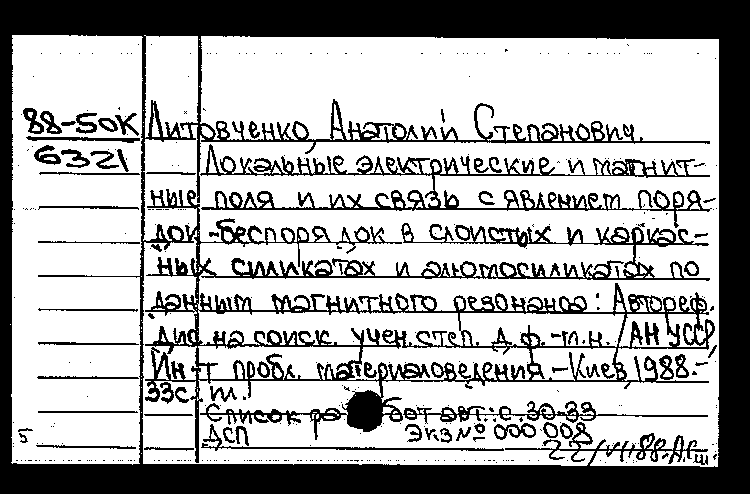 88-50К Литовченко, Анатолий Степанович.
6321 Локальные электрические и магнит-
ные поля и их связь с явлением поря-
док-беспорядок в слоистых и каркас-
ных силикатах и алюмосиликатах по
данным магнитного резонанса: Автореф.
дис на соиск. учен. степ. д.ф.-м.н. /АН УССР,
Ин-т пробл. материаловедения.-Киев, 1988.-
33с.
Список работ авт.: с. 30-33
5 ДСП Экз № 000 008
22/VII 88